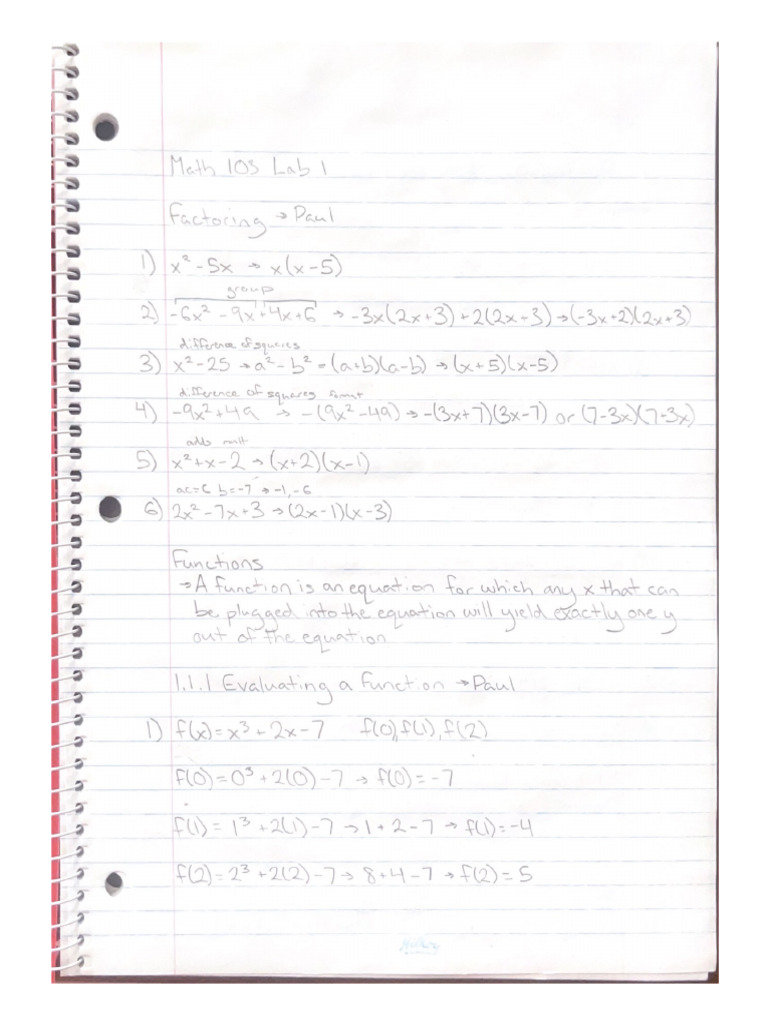 Math 103 Lab 1
Factoring → Paul
1) x² - 5x → x(x-5)
group
2) -6x² - 9x + 4x + 6 → -3x(2x+3) + 2(2x+3) → (-3x+2)(2x+3)
difference of squares
3) x² - 25 → a² - b² = (a+b)(a-b) → (x+5)(x-5)
difference of squares format
4) -9x² + 49 → -(9x² - 49) → -(3x+7)(3x-7) or (7-3x)(7-3x)
adds mult
5) x² + x - 2 → (x+2)(x-1)
ac=6 b=-7 → -1, -6
6) 2x² - 7x + 3 → (2x-1)(x-3)
Functions
→ A function is an equation for which any x that can
be plugged into the equation will yield exactly one y
out of the equation
1.1.1 Evaluating a Function → Paul
1) f(x) = x³ + 2x - 7 f(0), f(1), f(2)
f(0) = 0³ + 2(0) - 7 → f(0) = -7
f(1) = 1³ + 2(1) - 7 → 1 + 2 - 7 → f(1) = -4
f(2) = 2³ + 2(2) - 7 → 8 + 4 - 7 → f(2) = 5